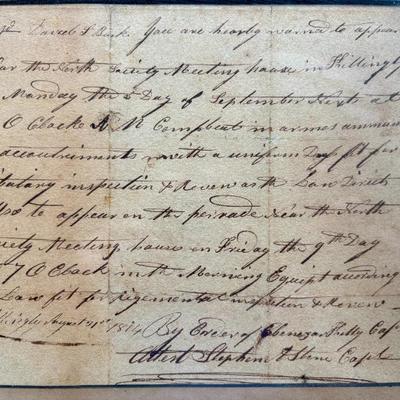 Daniel S Buck You are hearby warned to appear
for the North Society Meeting house in Killingly
Monday the 5 Day of September Next at
O Clocke A M Compleat in armes ammun
accoutriments with a uniform Dress fit for
litary inspection & Revew as the Law Directs
Also to appear on the perrade Near the North
ciety Meeting house on Friday the 9th Day
7 O Clock in the Morning Equipt according
Law fit for Regimental inspection & Revew
Killingly August 21st 1814 By Order of Ebenezar Kelly Capt
Attest Stephen Stone